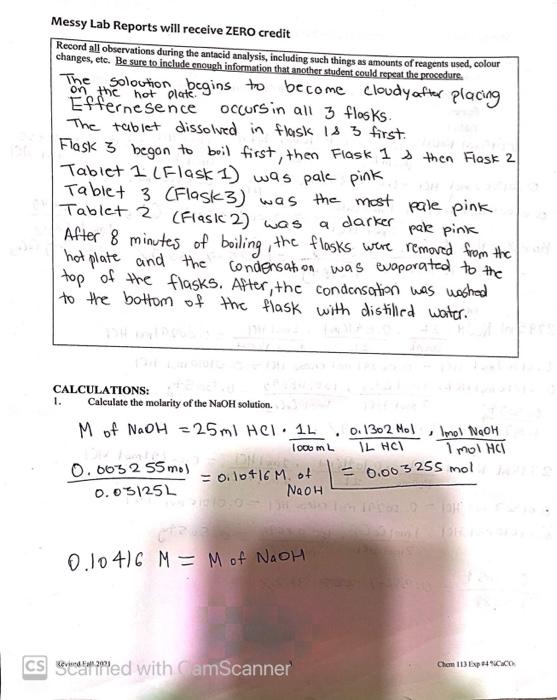 Messy Lab Reports will receive ZERO credit
Record all observations during the antacid analysis, including such things as amounts of reagents used, colour
changes, etc. Be sure to include enough information that another student could repeat the procedure.
The soloution begins to become cloudy after placing
on the hot plate.
Effernesence occurs in all 3 flasks.
The tablet dissolved in flask 1 & 3 first.
Flask 3 began to boil first, then Flask 1 & then Flask 2
Tablet 1 (Flask 1) was pale pink
Tablet 3 (Flask 3) was the most pale pink
Tablet 2 (Flask 2) was a darker pale pink
After 8 minutes of boiling, the flasks were removed from the
hot plate and the condensation was evaporated to the
top of the flasks. After, the condensation was washed
to the bottom of the flask with distilled water.
CALCULATIONS:
1. Calculate the molarity of the NaOH solution.
M of NaOH = 25ml HCl · 1L / 1000mL · 0.1302 Mol / 1L HCl · 1mol NaOH / 1 mol HCl
0.003255mol / 0.03125L = 0.10416 M of NaOH = 0.003255 mol
0.10416 M = M of NaOH
Revised Fall 2021
Chem 113 Exp #4 %CaCO₃
CS Scanned with CamScanner